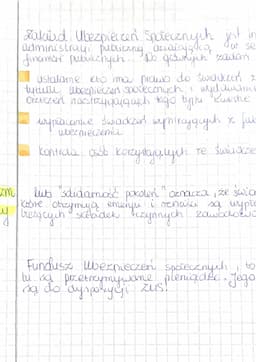 Zakład Ubezpieczeń Społecznych jest in
administracji publicznej działającą w se
finansów publicznych. Do głównych zadań
ustalanie kto ma prawo do świadczeń z
tytułu ubezpieczeń społecznych i wydawanie
orzeczeń rozstrzygających tego typu kwestie
wypłacanie świadczeń wynikających z
ubezpieczenia
kontrola osób korzystających ze świadcze
zm lub "solidarność pokoleń" oznacza, że świa
y które otrzymują emeryci i renciści są wypła
bieżących składek czynnych zawodowo
Fundusz Ubezpieczeń społecznych, to
tu są przetrzymywane pieniądze. Jego
są do dyspozycji ZUS!